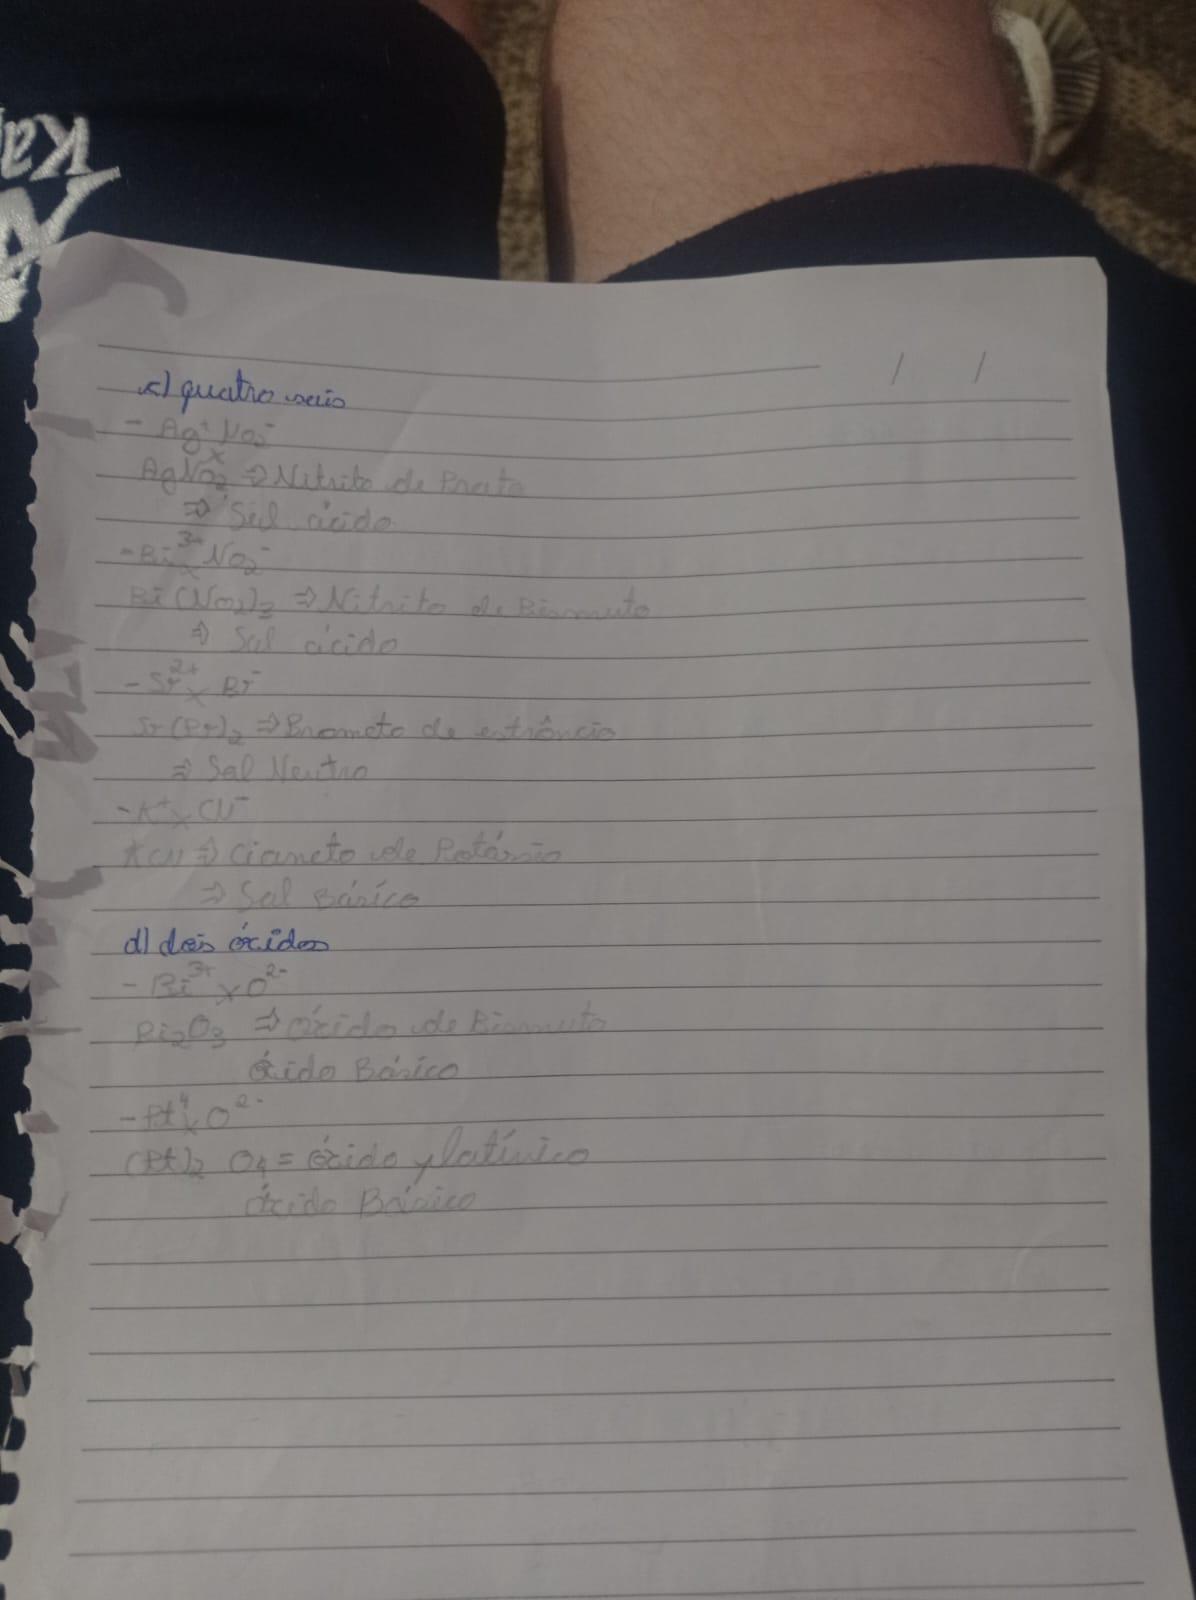 Ka
c) quatro sais
- Ag⁺ NO₂⁻
x
AgNO₂ ⇒ Nitrito de Prata
⇒ Sal ácido
- Bi³⁺ x NO₂⁻
Bi(NO₂)₃ ⇒ Nitrito de Bismuto
⇒ Sal ácido
- Sr²⁺ x Br⁻
Sr(Br)₂ ⇒ Brometo de estrôncio
⇒ Sal Neutro
- K⁺ x CN⁻
KCN ⇒ Cianeto de Potássio
⇒ Sal Básico
d) dois óxidos
- Bi³⁺ x O²⁻
Bi₂O₃ ⇒ óxido de Bismuto
óxido Básico
- Pt⁴ x O²⁻
(Pt)₂ O₄ = óxido platínico
óxido Básico